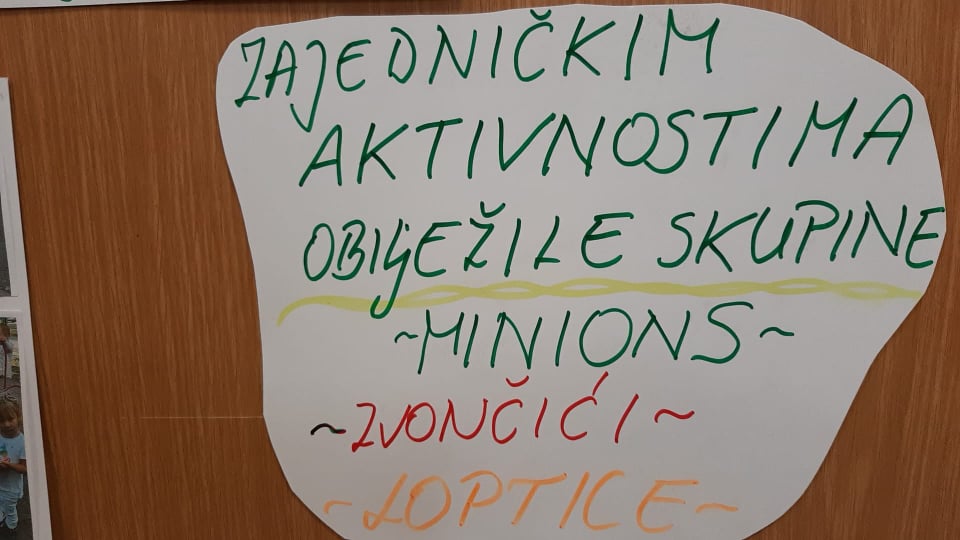 ZAJEDNIČKIM
AKTIVNOSTIMA
OBILJEŽILE SKUPINE
~MINIONS~
~ZVONČIĆI~
~LOPTICE~